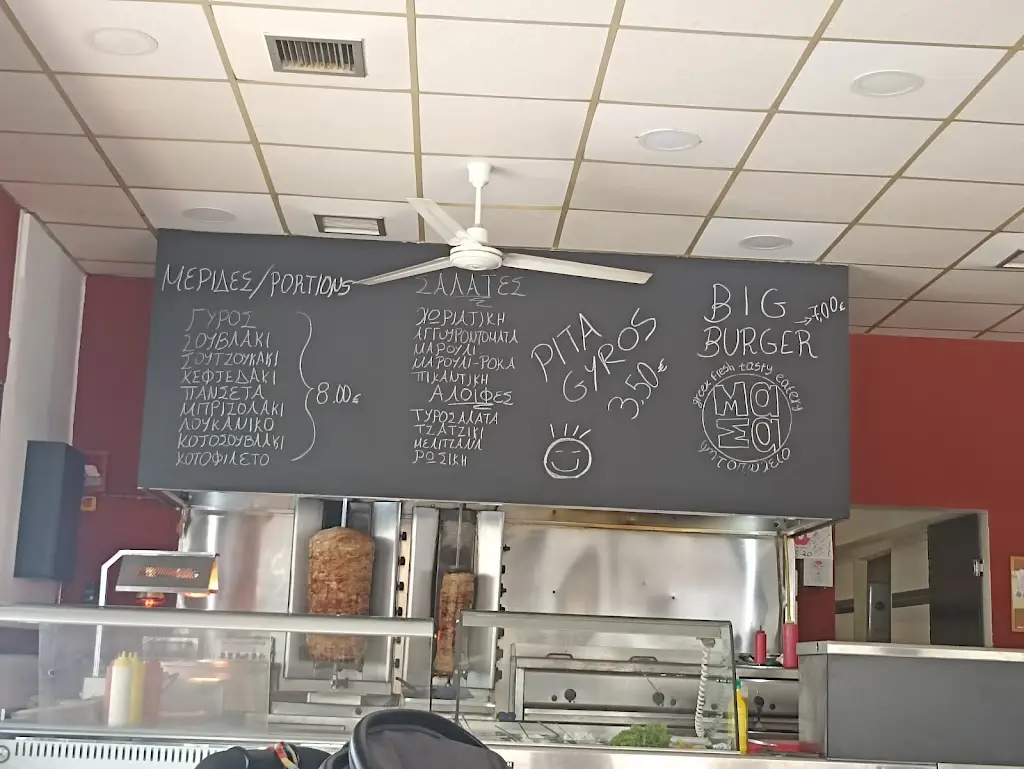 ΜΕΡΙΔΕΣ/PORTIONS
ΓΥΡΟΣ
ΣΟΥΒΛΑΚΙ
ΣΟΥΤΖΟΥΚΑΚΙ
ΚΕΦΤΕΔΑΚΙ
ΠΑΝΣΕΤΑ
ΜΠΡΙΖΟΛΑΚΙ
ΛΟΥΚΑΝΙΚΟ
ΚΟΤΟΣΟΥΒΛΑΚΙ
ΚΟΤΟΦΙΛΕΤΟ
8.00€
ΣΑΛΑΤΕΣ
ΧΩΡΙΑΤΙΚΗ
ΑΓΓΟΥΡΟΝΤΟΜΑΤΑ
ΜΑΡΟΥΛΙ
ΜΑΡΟΥΛΙ-ΡΟΚΑ
ΠΙΚΑΝΤΙΚΗ
ΑΛΟΙΦΕΣ
ΤΥΡΟΣΑΛΑΤΑ
ΤΖΑΤΖΙΚΙ
ΜΕΛΙΤΖΑΝΑ
ΡΩΣΙΚΗ
PITA
GYROS
3,50€
BIG
BURGER
→7,00€
greek fresh tasty eatery
Μα
Σα
ψητοπωλείο